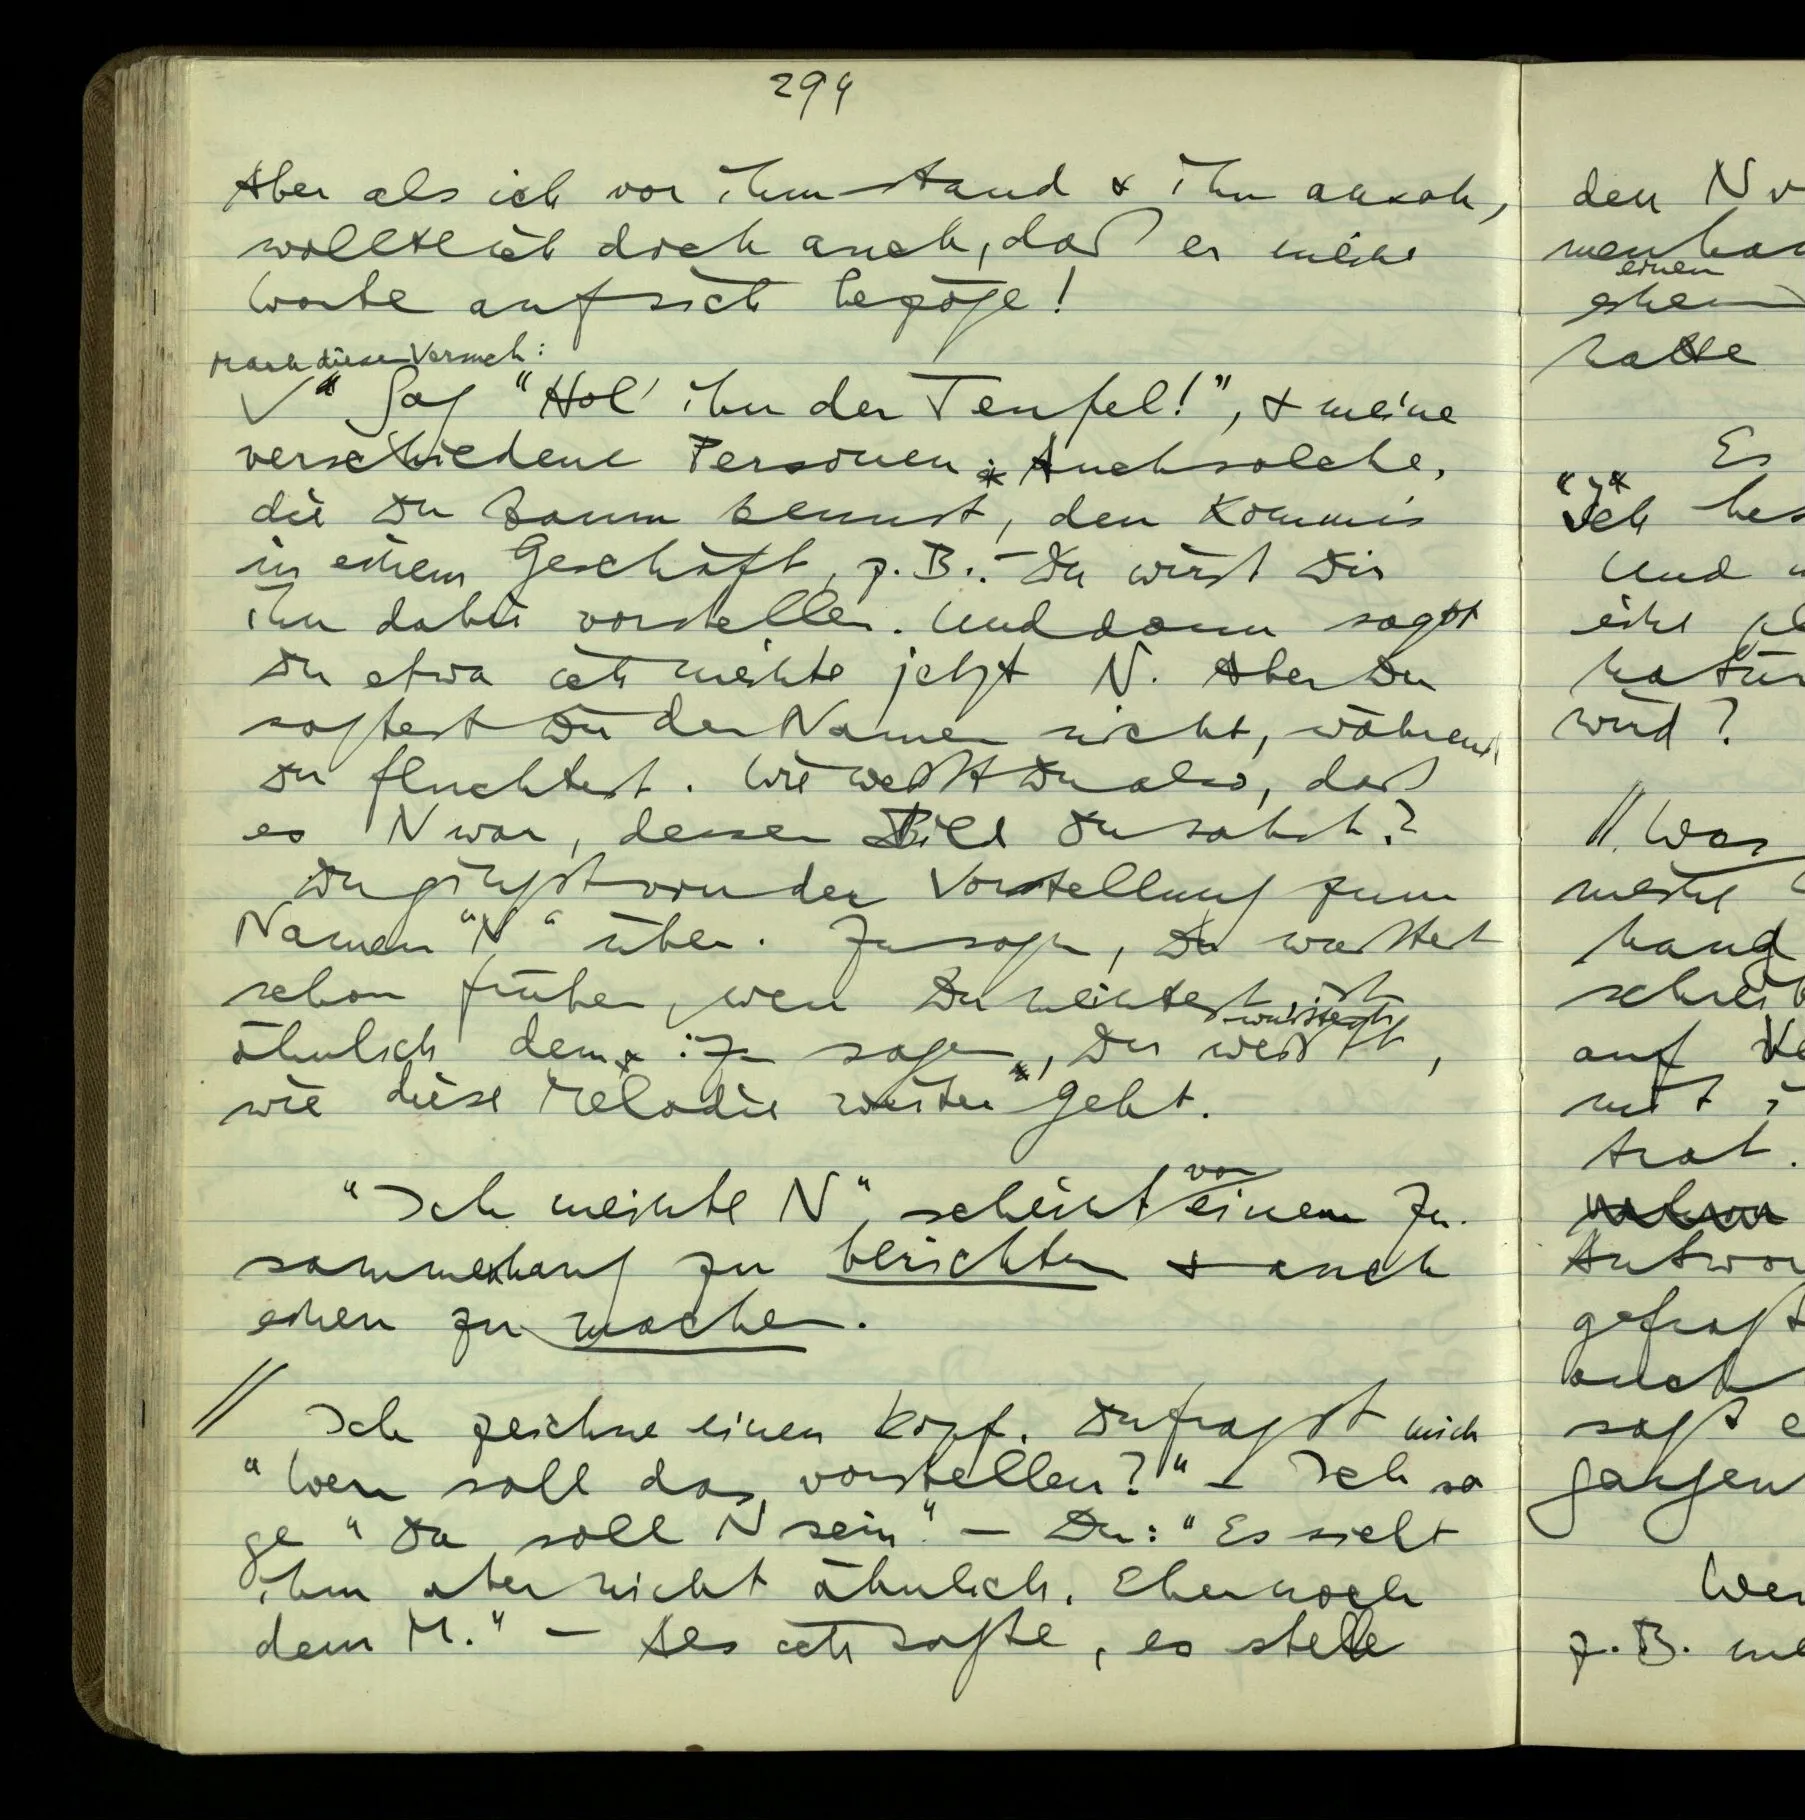 294
Aber als ich vor ihm stand & ihn ansah,
wollte ich doch auch, daß er meine
Worte auf sich bezöge!
Mach diesen Versuch:
Sag "Hol' ihn der Teufel!", & meine
verschiedene Personen. Auch solche,
die Du kaum kennst, den Kommis
in einem Geschäft, z.B.. – Du wirst Dir
ihn dabei vorstellen. Und dann sagst
Du etwa ich meinte jetzt N. Aber Du
sagtest Dir den Namen nicht, während
Du fluchtest. Wie weißt Du also, daß
es N war, dessen Bild Du sahst?
Du gingst von der Vorstellung zum
Namen "N" über. Zu sagen, Du wußtest
schon früher, wen Du meintest, ist
wüsstest
ähnlich dem: zu sagen, Du weißt,
wie diese Melodie weiter geht.
"Ich meinte N", scheint von einem Zu-
sammenhang zu berichten & auch
einen zu machen.
// Ich zeichne einen Kopf. Du fragst mich
"Wen soll das vorstellen?" – Ich sa
ge "Da soll N sein." – Du: "Es sieht
ihm aber nicht ähnlich. Eher noch
dem M." – Als ich sagte, es stelle
den N
einen
hatte
Es
"Ich
Und
wird?
// Was
meine
hand
auf
mit
trat.
gefragt
auch
sagt
gangen
z.B.